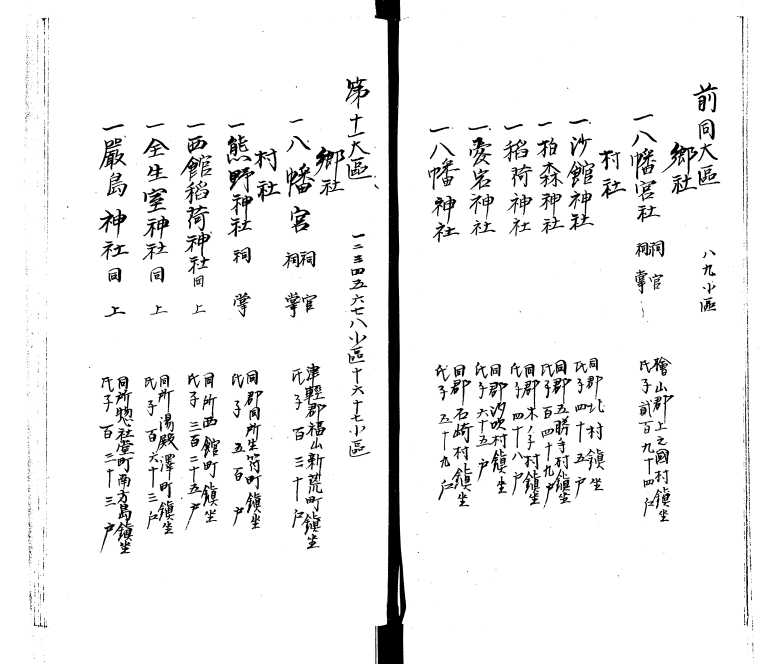 前同大區 八九小區
鄕社
一八幡宮社 祠官 祠掌 檜山郡上之國村鎭坐 氏子貳百九十四戶
村社
一沙館神社 同郡北村鎭坐 氏子四十五戶
一柏森神社 同郡五勝手村鎭坐 氏子百四十九戶
一稻荷神社 同郡木ノ子村鎭坐 氏子四十八戶
一愛宕神社 同郡汐吹村鎭坐 氏子六十五戶
一八幡神社 同郡石崎村鎭坐 氏子五十九戶
第十一大區 一二三四五六七八小區十六十七小區
鄕社
一八幡宮 祠官 祠掌 津輕郡福山新荒町鎭坐 氏子百三十戶
村社
一熊野神社 祠掌 同郡同所生符町鎭坐 氏子五百戶
一西館稻荷神社 同上 同所西館町鎭坐 氏子三百二十五戶
一全生室神社 同上 同所湯殿澤町鎭坐 氏子百六十三戶
一嚴島神社 同上 同所惣社堂町南方島鎭坐 氏子百二十三戶